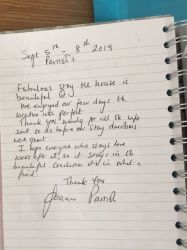 Sept 5th - 8th 2019
Parrish's
Fabulous stay the house is
beautiful
We enjoyed our few days the
weather was perfect
Thank you for all the info
sent to us before our stay
next guest
I hope everyone who stays here
looks after it, so it stays in the
beautiful condition it is in what a
find.
Thank You
Joanne Parrish